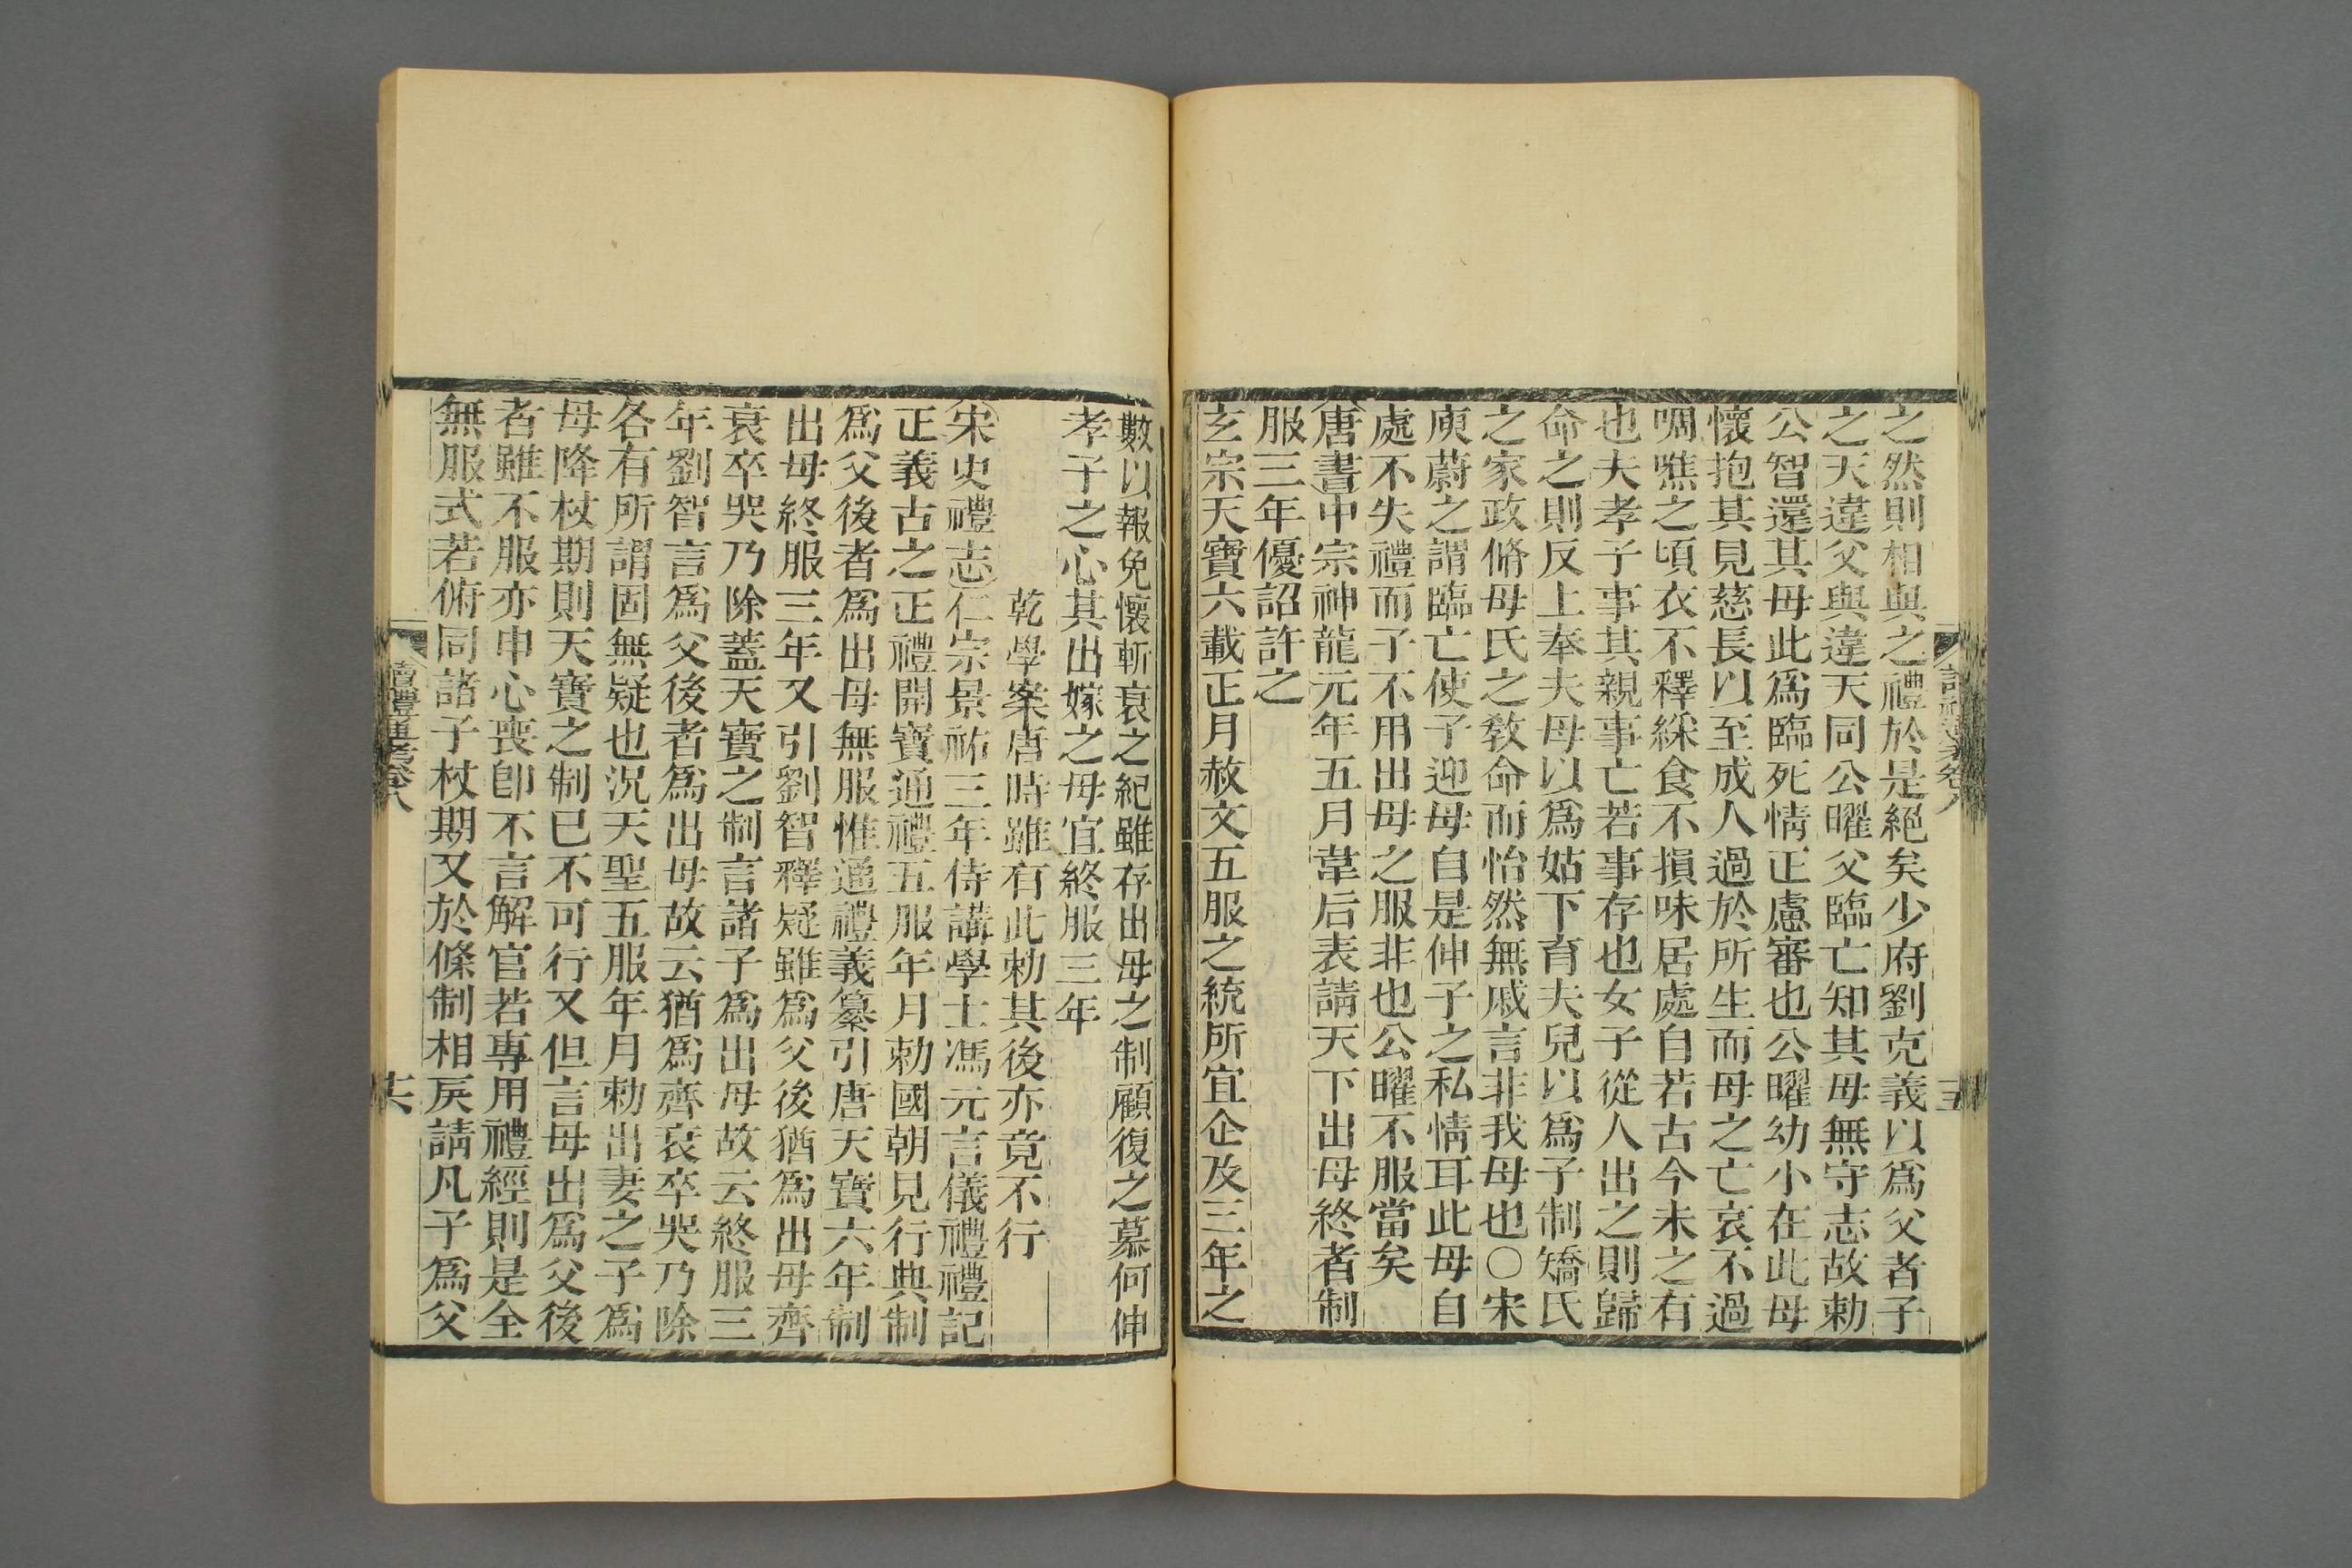 之然則相與之禮於是絕矣少府劉克義以爲父者子
之天違父與違天同公曜父臨亡知其母無守志故勅
公智還其母此爲臨死情正慮審也公曜幼小在此母
懷抱其見慈長以至成人過於所生而母之亡哀不過
啁噍之頃衣不釋綵食不損味居處自若古今未之有
也夫孝子事其親事亡若事存也女子從人出之則歸
命之則反上奉夫母以爲姑下育夫兒以爲子制矯氏
之家政脩母氏之敎命而怡然無戚言非我母也○宋
庾蔚之謂臨亡使子迎母自是伸子之私情耳此母自
處不失禮而子不用出母之服非也公曜不服當矣
唐書中宗神龍元年五月韋后表請天下出母終者制
服三年優詔許之
玄宗天寶六載正月赦文五服之統所宜企及三年之
數以報免懷斬衰之紀雖存出母之制顧復之慕何伸
孝子之心其出嫁之母宜終服三年
乾學案唐時雖有此勅其後亦竟不行
宋史禮志仁宗景祐三年侍講學士馮元言儀禮禮記
正義古之正禮開寶通禮五服年月勅國朝見行典制
爲父後者爲出母無服惟通禮義纂引唐天寶六年制
出母終服三年又引劉智釋疑雖爲父後猶爲出母齊
衰卒哭乃除蓋天寶之制言諸子爲出母故云終服三
年劉智言爲父後者爲出母故云猶爲齊衰卒哭乃除
各有所謂固無疑也況天聖五服年月勅出妻之子爲
母降杖期則天寶之制已不可行又但言母出爲父後
者雖不服亦申心喪卽不言解官若專用禮經則是全
無服式若俯同諸子杖期又於條制相戾請凡子爲父
讀禮通考卷八
十六